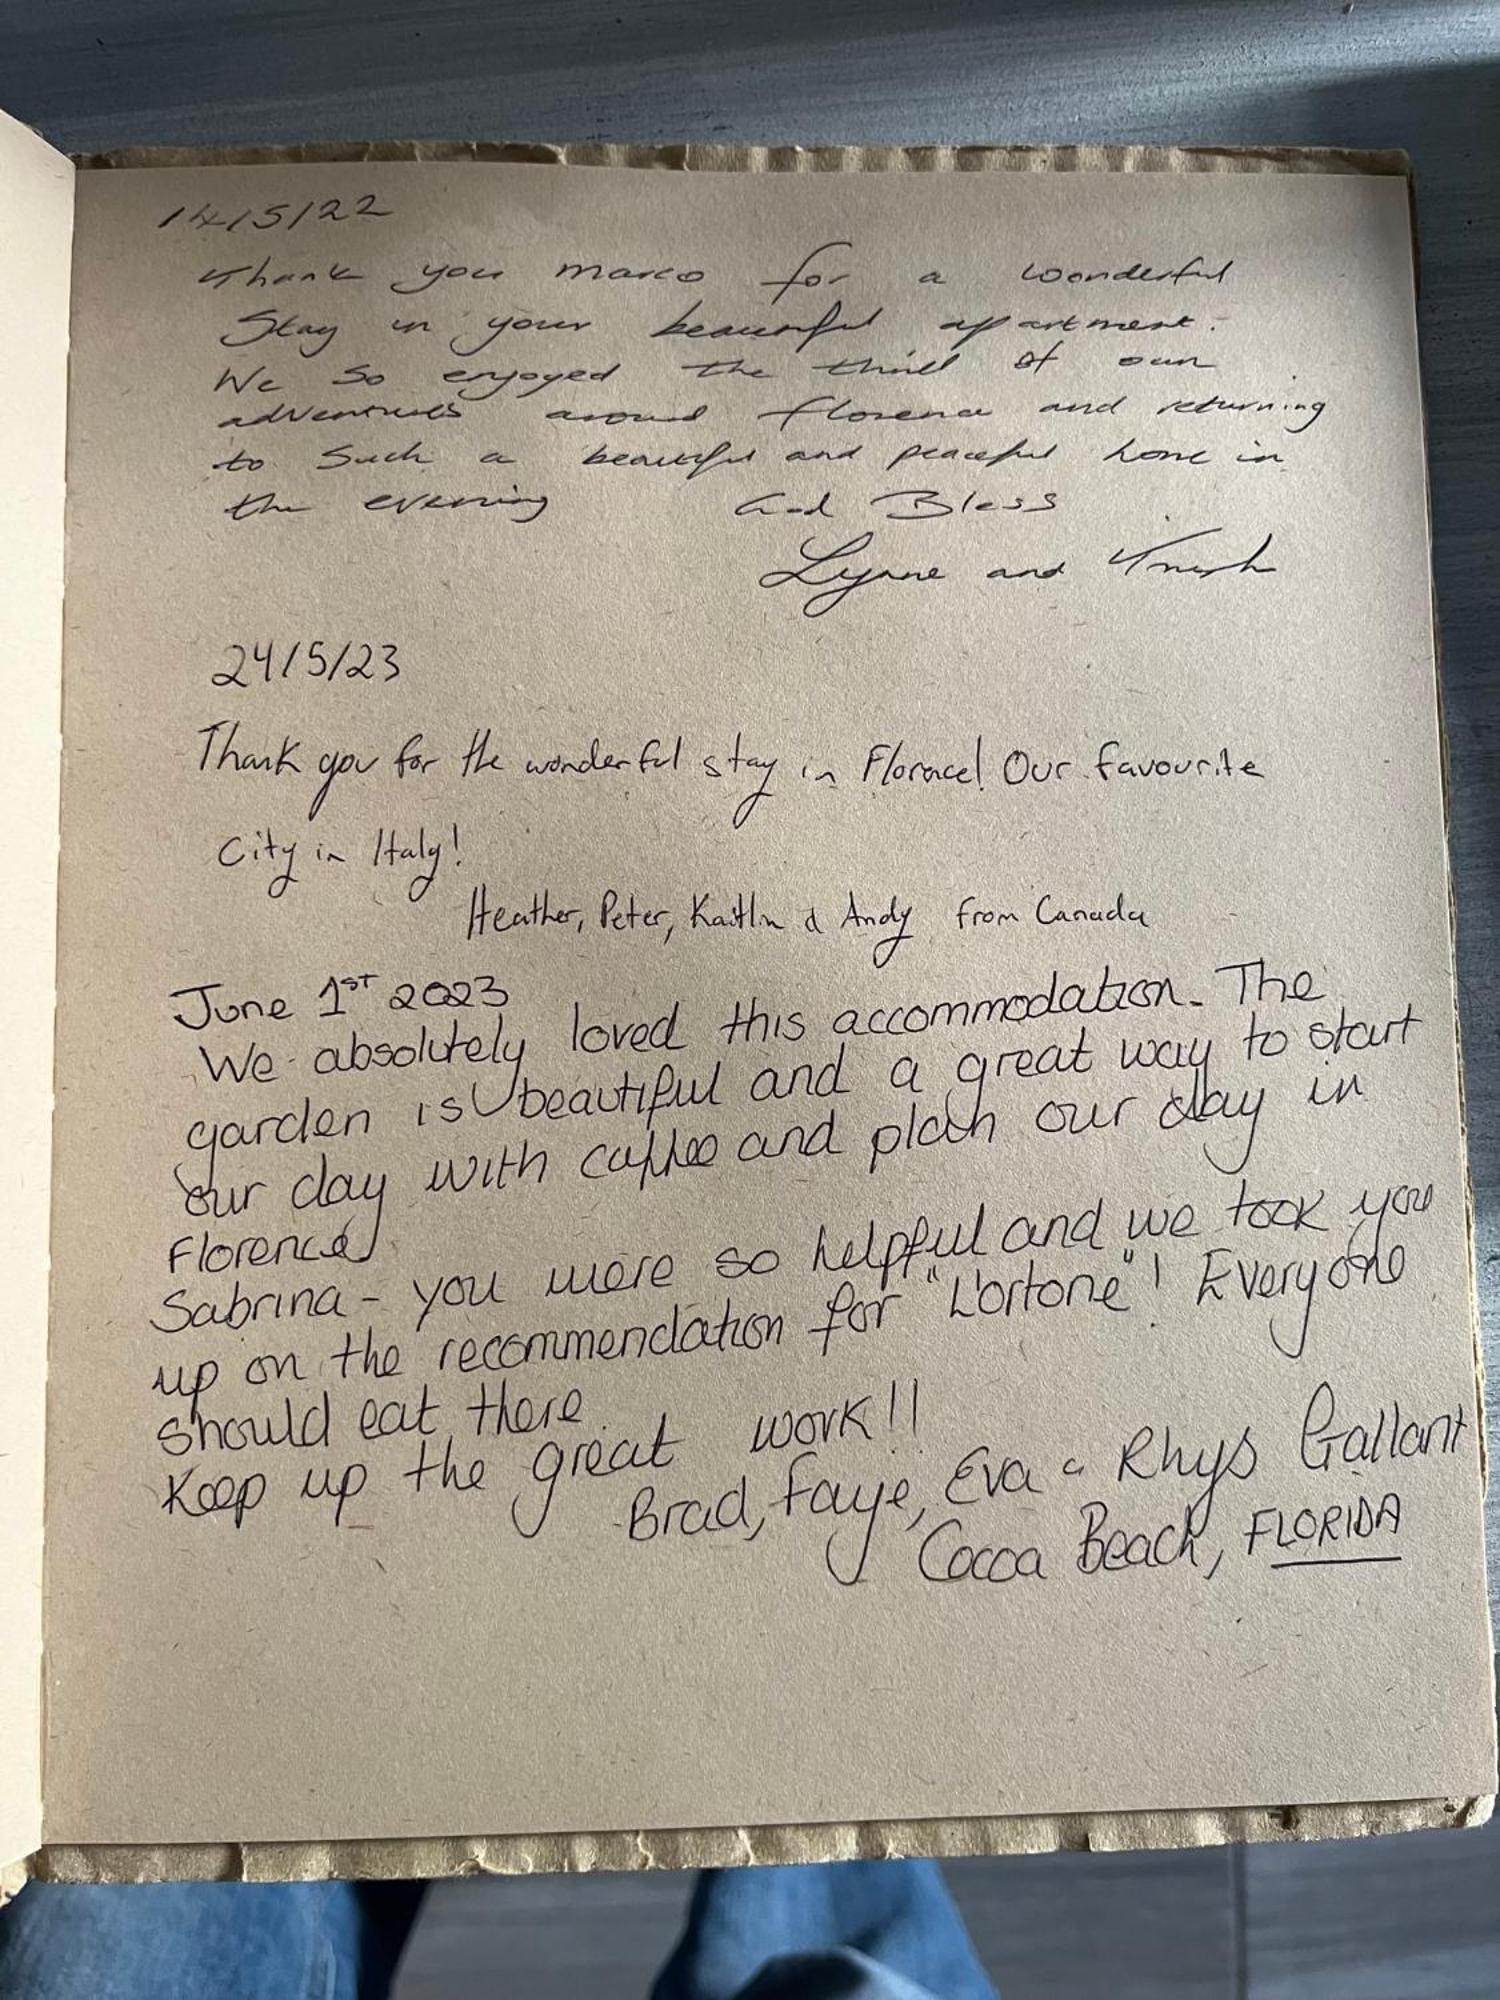 14/5/22
Thank you marco for a wonderful
Stay in your beautiful apartment.
We so enjoyed the thrill of our
adventures around florence and returning
to such a beautiful and peaceful home in
the evening God Bless
Lynne and Trish
24/5/23
Thank you for the wonderful stay in Florence! Our favourite
City in Italy!
Heather, Peter, Kaitlin & Andy from Canada
June 1ST 2023
We absolutely loved this accommodation. The
garden is beautiful and a great way to start
our day with coffee and plan our day in
Florence
Sabrina - you were so helpful and we took you
up on the recommendation for "L'ortone"! Everyone
should eat there.
Keep up the great work!!
Brad, Faye, Eva & Rhys Gallant
Cocoa Beach, FLORIDA